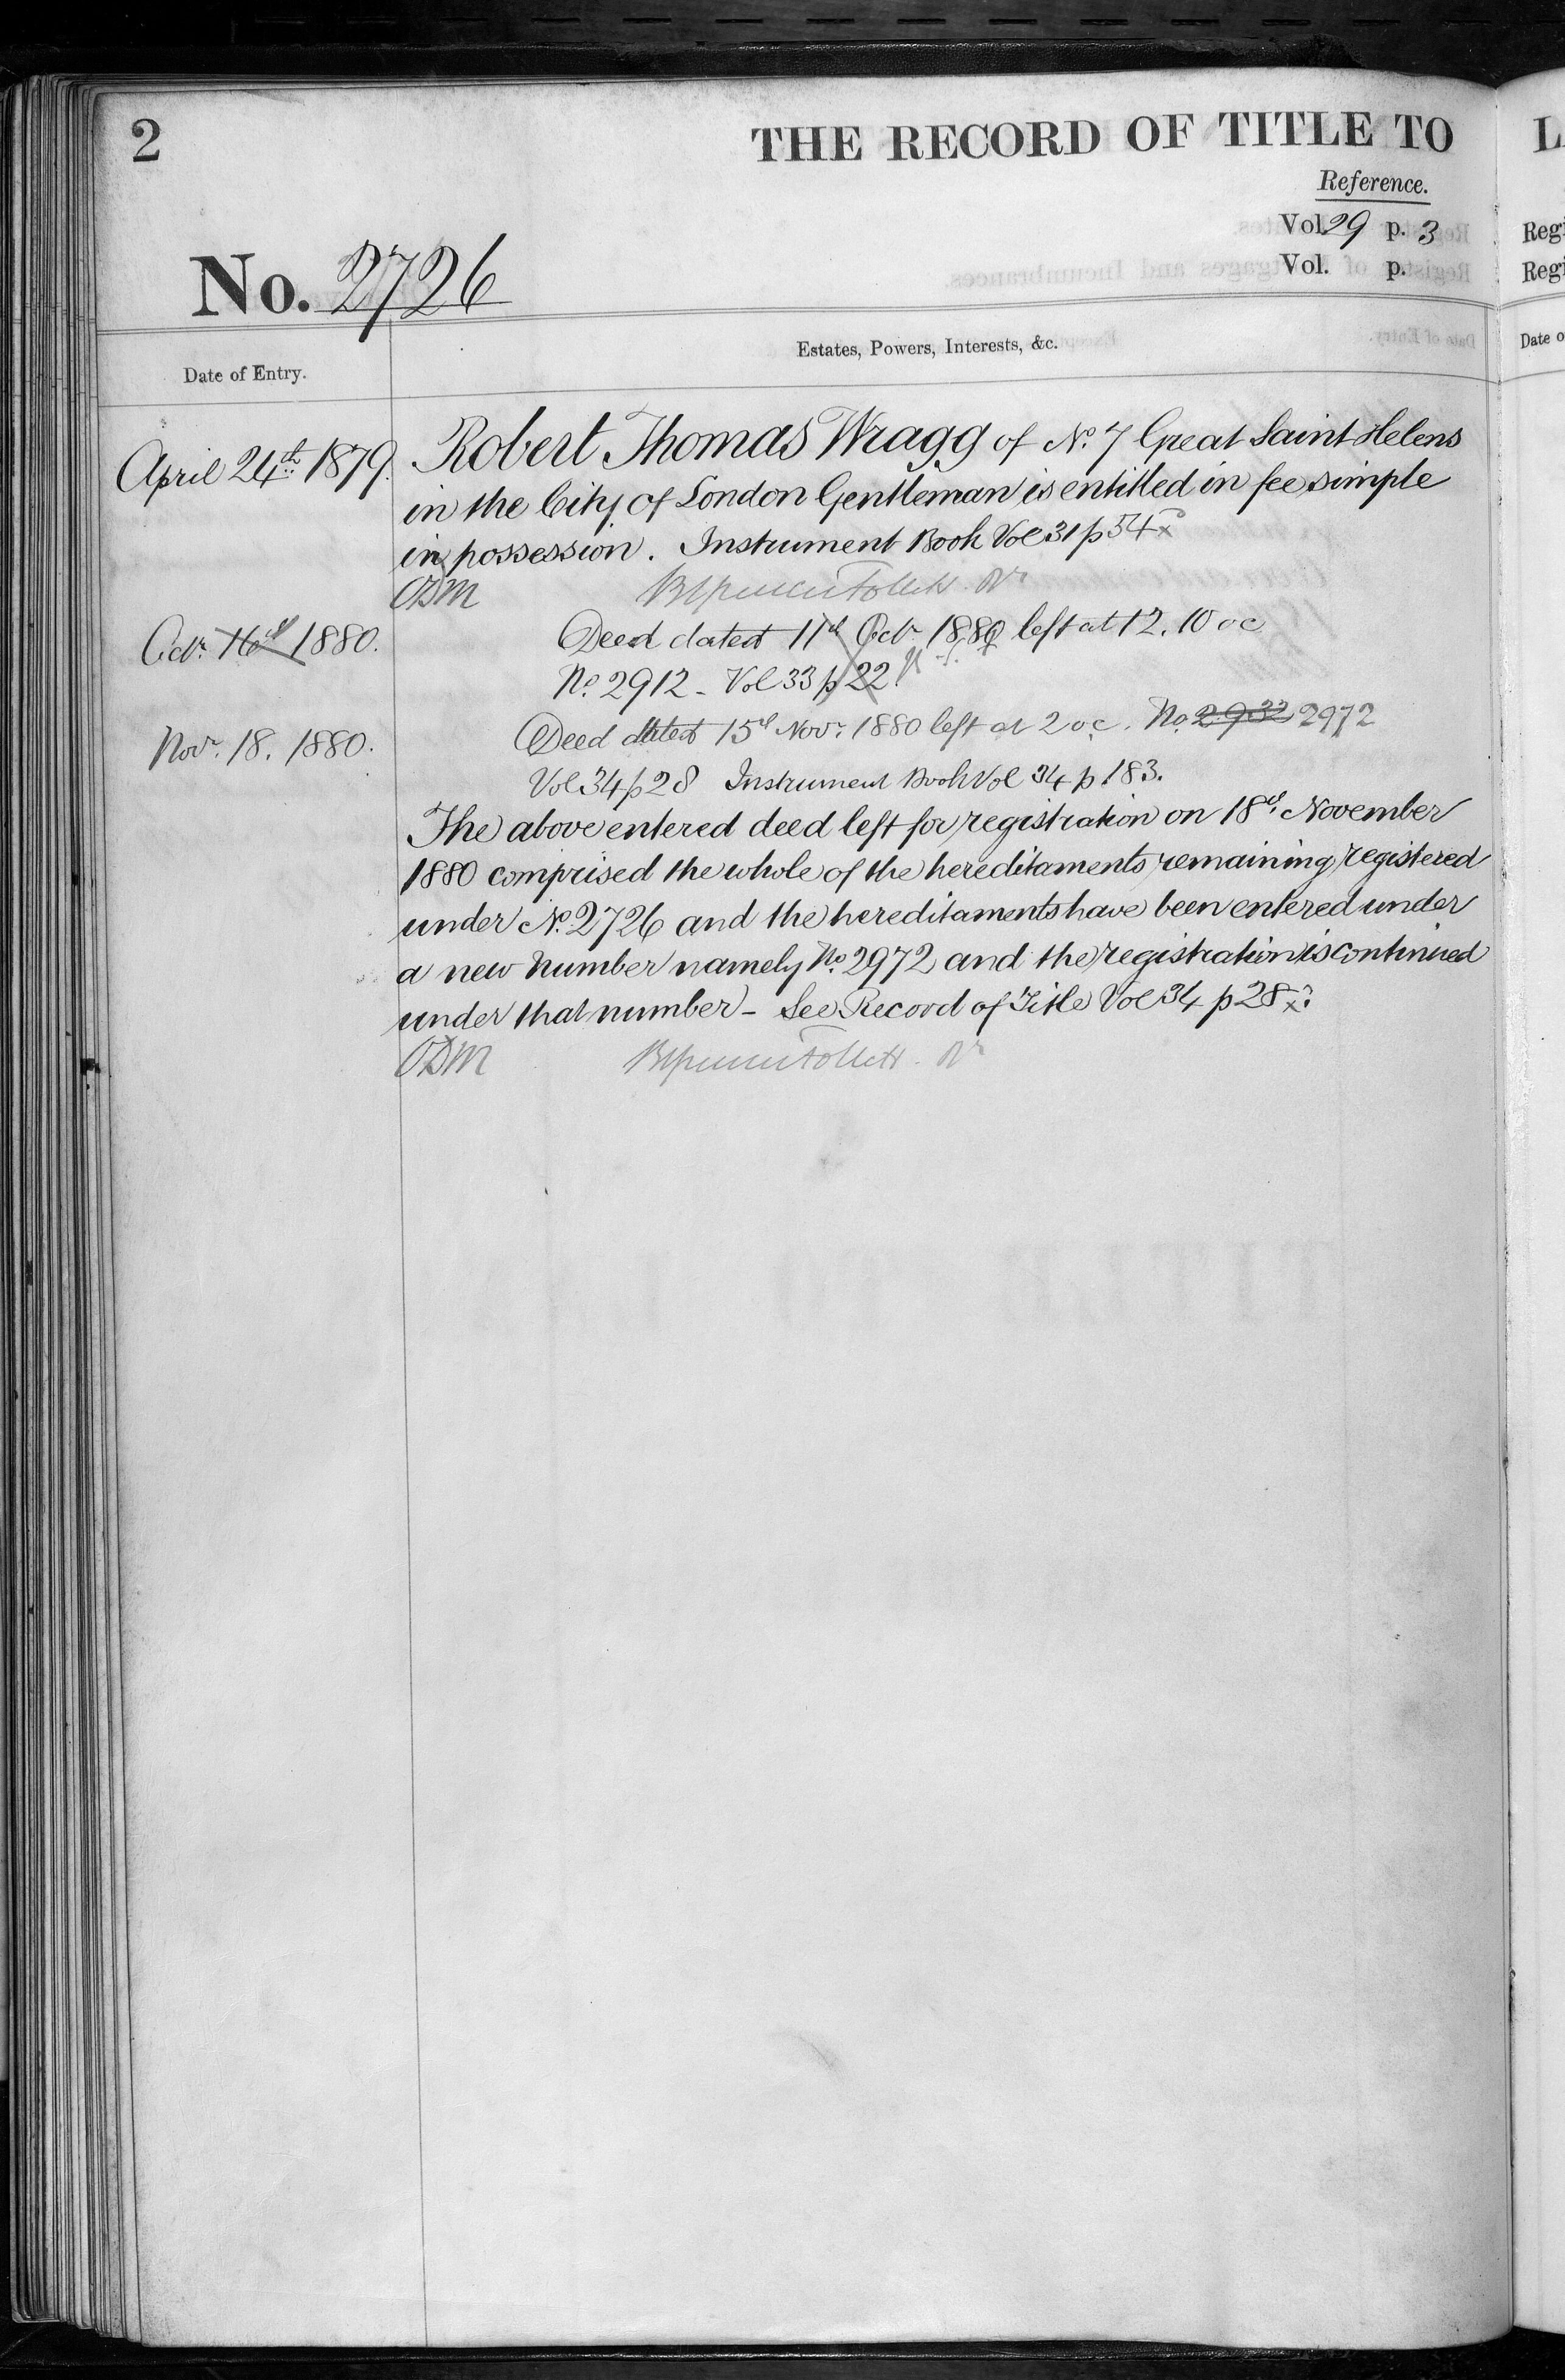 2
THE RECORD OF TITLE TO
Reference.
Vol. 29 p. 3
Vol. p.
No. 2726
Date of Entry.
Estates, Powers, Interests, &c.
April 24th 1879.
Robert Thomas Wragg of No. 7 Great Saint Helens
in the City of London Gentleman is entitled in fee simple
in possession. Instrument Book Vol 31 p 54
ODM
Octr. 16th 1880.
Deed dated 11th Octr. 1880 left at 12.10 oc
No. 2912 - Vol 33 p 22
Novr. 18. 1880.
Deed dated 15th Novr. 1880 left at 2 oc. No. 2932 2972
Vol 34 p 28 Instrument Book Vol 34 p 183.
The above entered deed left for registration on 18th November
1880 comprised the whole of the hereditaments remaining registered
under No. 2726 and the hereditaments have been entered under
a new number namely No. 2972 and the registration is continued
under that number - See Record of Title Vol 34 p 28
ODM
L
Regi
Regi
Date o